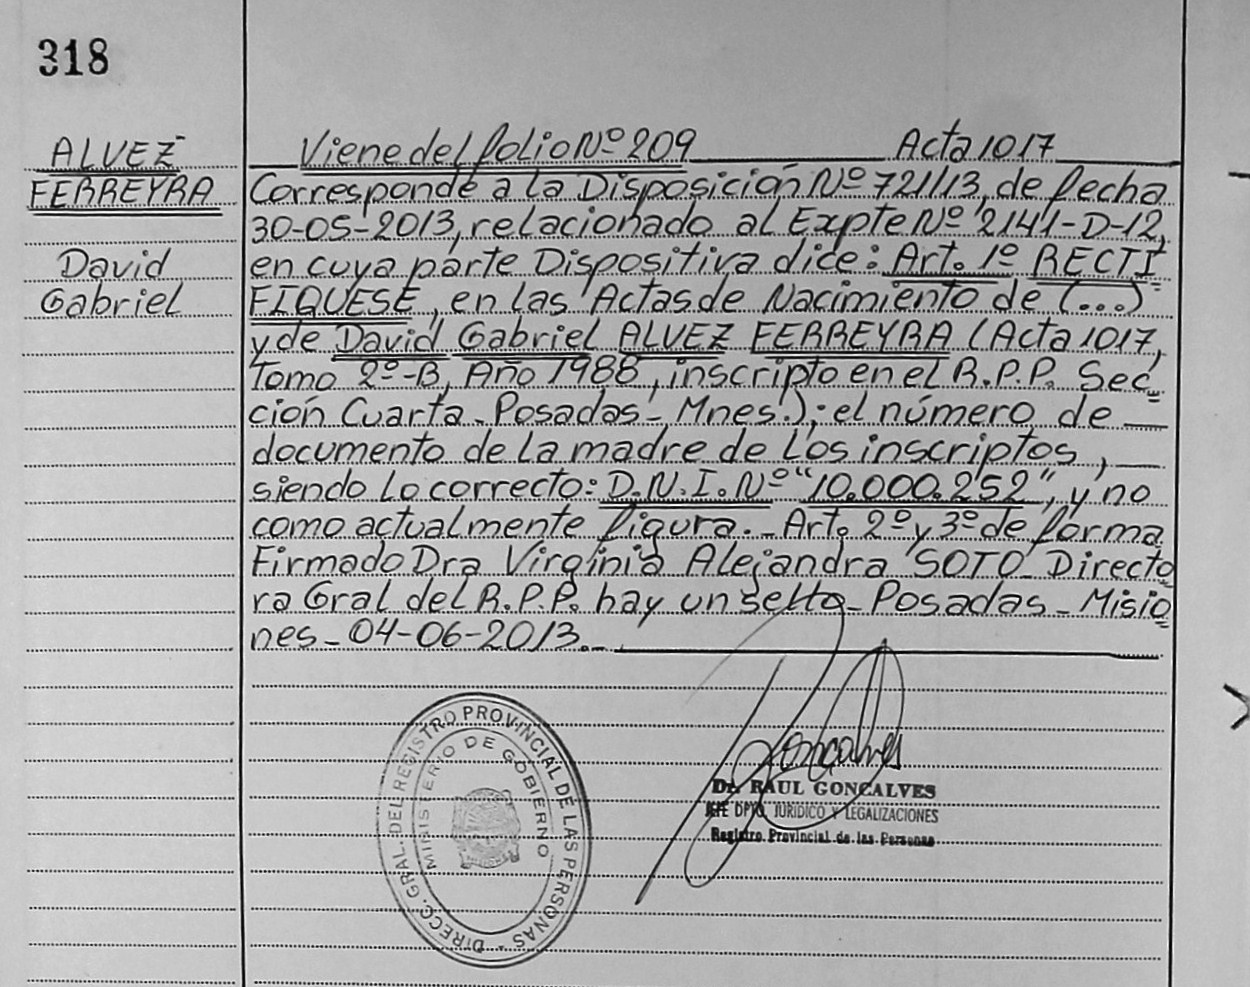 318
ALVEZ
FERREYRA
David
Gabriel
Viene del folio Nº 209 Acta 1017
Corresponde a la Disposición Nº 721/13, de fecha
30-05-2013, relacionado al Expte Nº 2141-D-12,
en cuya parte Dispositiva dice: Art. 1º RECTI
FIQUESE, en las Actas de Nacimiento de (...)
y de David Gabriel ALVEZ FERREYRA (Acta 1017,
Tomo 2º-B, Año 1988, inscripto en el R.P.P. Sec
ción Cuarta - Posadas - Mnes.); el número de
documento de la madre de los inscriptos,
siendo lo correcto: D.N.I. Nº "10.000.252", y no
como actualmente figura.- Art. 2º y 3º de forma
Firmado Dra Virginia Alejandra SOTO - Directo
ra Gral del R.P.P. hay un sello - Posadas - Misio
nes - 04-06-2013.-
DIRECC. GRAL. DEL REGISTRO PROVINCIAL DE LAS PERSONAS -
MINISTERIO DE GOBIERNO
Goncalves
Dr. RAUL GONCALVES
JEFE DPTO. JURIDICO Y LEGALIZACIONES
Registro Provincial de las Personas